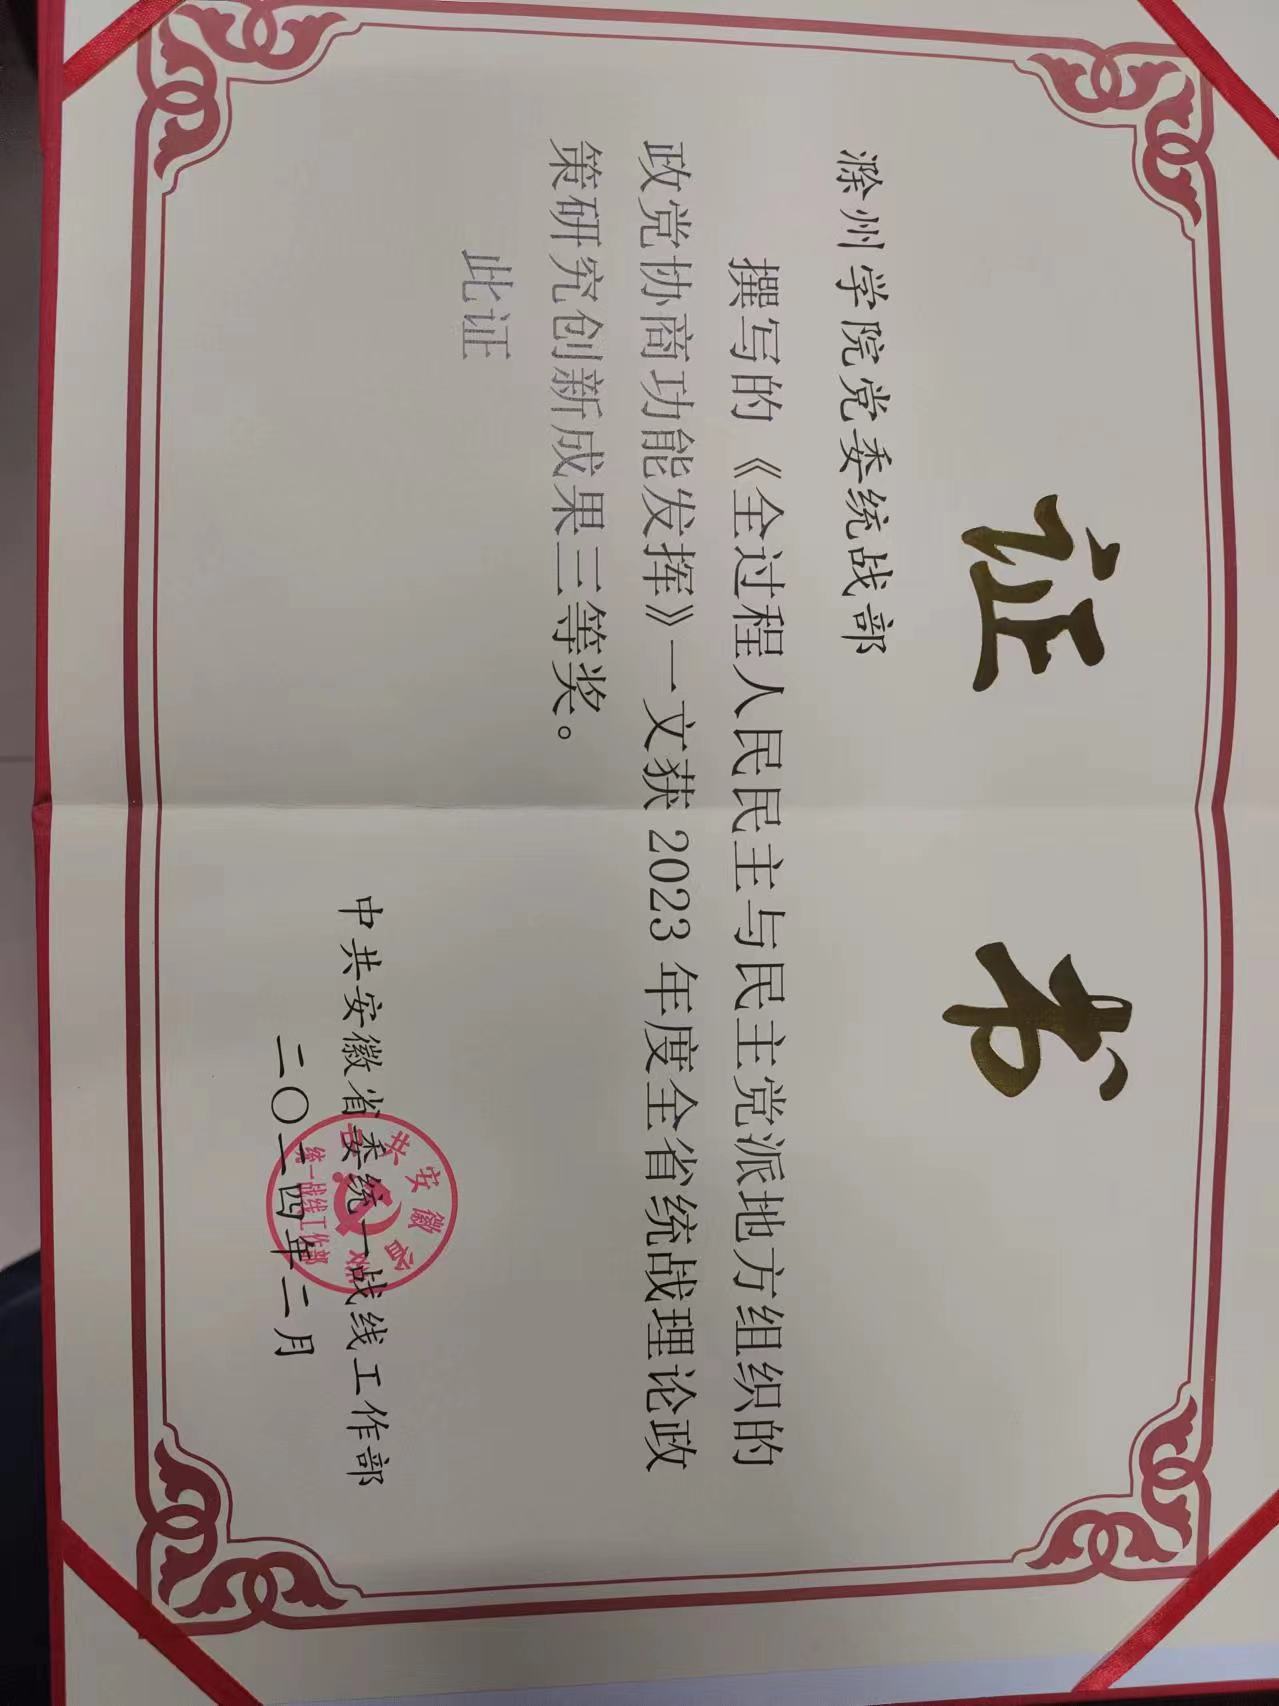 证书
滁州学院党委统战部
撰写的《全过程人民民主与民主党派地方组织的
政党协商功能发挥》一文获2023年度全省统战理论政
策研究创新成果三等奖。
此证
中共安徽省委统一战线工作部
二〇二四年二月
中共安徽省委
统一战线工作部